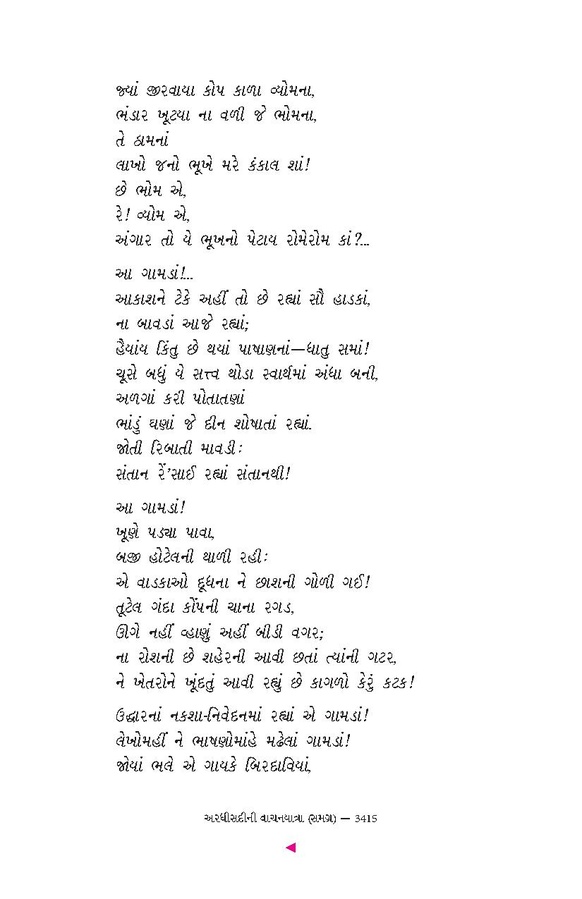 જ્યાં જીરવાયા કોપ કાળા વ્યોમના,
ભંડાર ખૂટયા ના વળી જે ભોમના,
તે ઠામનાં
લાખો જનો ભૂખે મરે કંકાલ શાં!
છે ભોમ એ,
રે! વ્યોમ એ,
અંગાર તો યે ભૂખનો પેટાય રોમેરોમ કાં?...
આ ગામડાં!...
આકાશને ટેકે અહીં તો છે રહ્યાં સૌ હાડકાં,
ના બાવડાં આજે રહ્યાં;
હૈયાંય કિંતુ છે થયાં પાષાણનાં—ધાતુ સમાં!
ચૂસે બધું યે સત્ત્વ થોડા સ્વાર્થમાં અંધા બની,
અળગાં કરી પોતાતણાં
ભાંડું ઘણાં જે દીન શોષાતાં રહ્યાં.
જોતી રિબાતી માવડી:
સંતાન રેં'સાઈ રહ્યાં સંતાનથી!
આ ગામડાં!
ખૂણે પડ્યા પાવા,
બજી હોટેલની થાળી રહી:
એ વાડકાઓ દૂધના ને છાશની ગોળી ગઈ!
તૂટેલ ગંદા કૉપની ચાના રગડ,
ઊગે નહીં વ્હાણું અહીં બીડી વગર;
ના રોશની છે શહેરની આવી છતાં ત્યાંની ગટર,
ને ખેતરોને ખૂંદતું આવી રહ્યું છે કાગળો કેરું કટક!
ઉદ્ધારનાં નકશા-નિવેદનમાં રહ્યાં એ ગામડાં!
લેખોમહીં ને ભાષણોમાંહે મઢેલાં ગામડાં!
જોયાં ભલે એ ગાયકે બિરદાવિયાં,
અરધીસદીની વાચનયાત્રા (સમગ્ર) — 3415